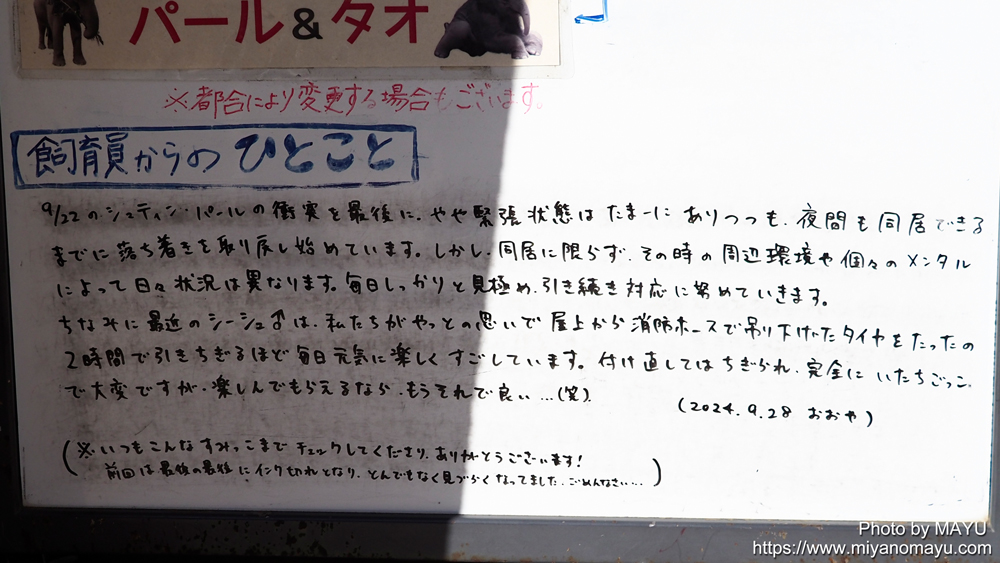 パール&タオ
※都合により変更する場合もございます。
飼育員からのひとこと
9/22のシュティン・パールの衝突を最後に、やや緊張状態はたまーにありつつも、夜間も同居できる
までに落ち着きを取り戻し始めています。しかし、同居に限らず、その時の周辺環境や個々のメンタル
によって日々状況は異なります。毎日しっかりと見極め、引き続き対応に努めていきます。
ちなみに最近のシーシュ♂は、私たちがやっとの思いで屋上から消防ホースで吊り下げたタイヤをたったの
2時間で引きちぎるほど毎日元気に楽しくすごしています。付け直してはちぎられ、完全にいたちごっこ
で大変ですが、楽しんでもらえるなら、もうそれで良い…(笑)
(2024.9.28 おおや)
(※いつもこんなすみっこまでチェックしてくださり、ありがとうございます!
前回は最後の最後にインク切れとなり、とんでもなく見づらくなってました。ごめんなさい…)
Photo by MAYU
https://www.miyanomayu.com